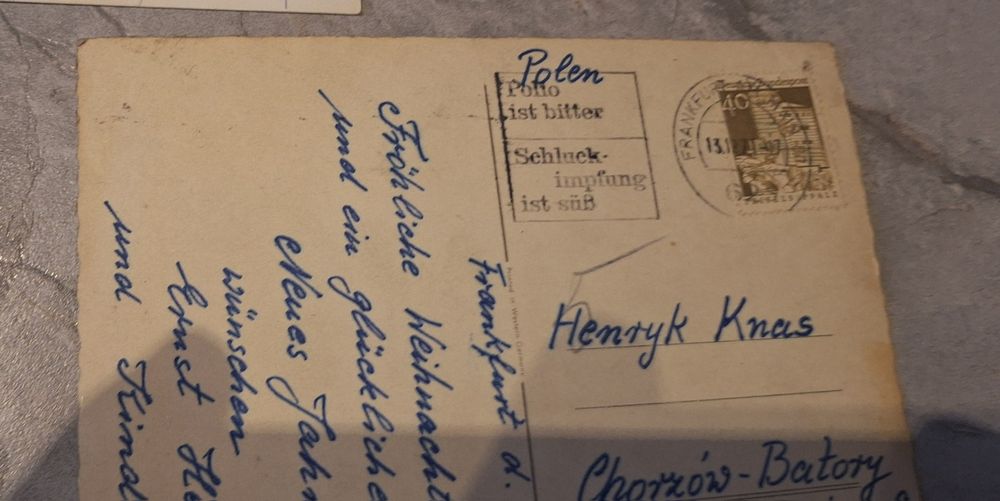 Polen
Polio
ist bitter
Schluck-
impfung
ist süß
FRANKFU
40
Bundespost
Frankfurt d.
Fröhliche Weihnacht
und ein glückliche
Neues Jahr
wünschen
Ernst He
und Kind
Printed in Western Germany
Henryk Knas
Chorzów-Batory